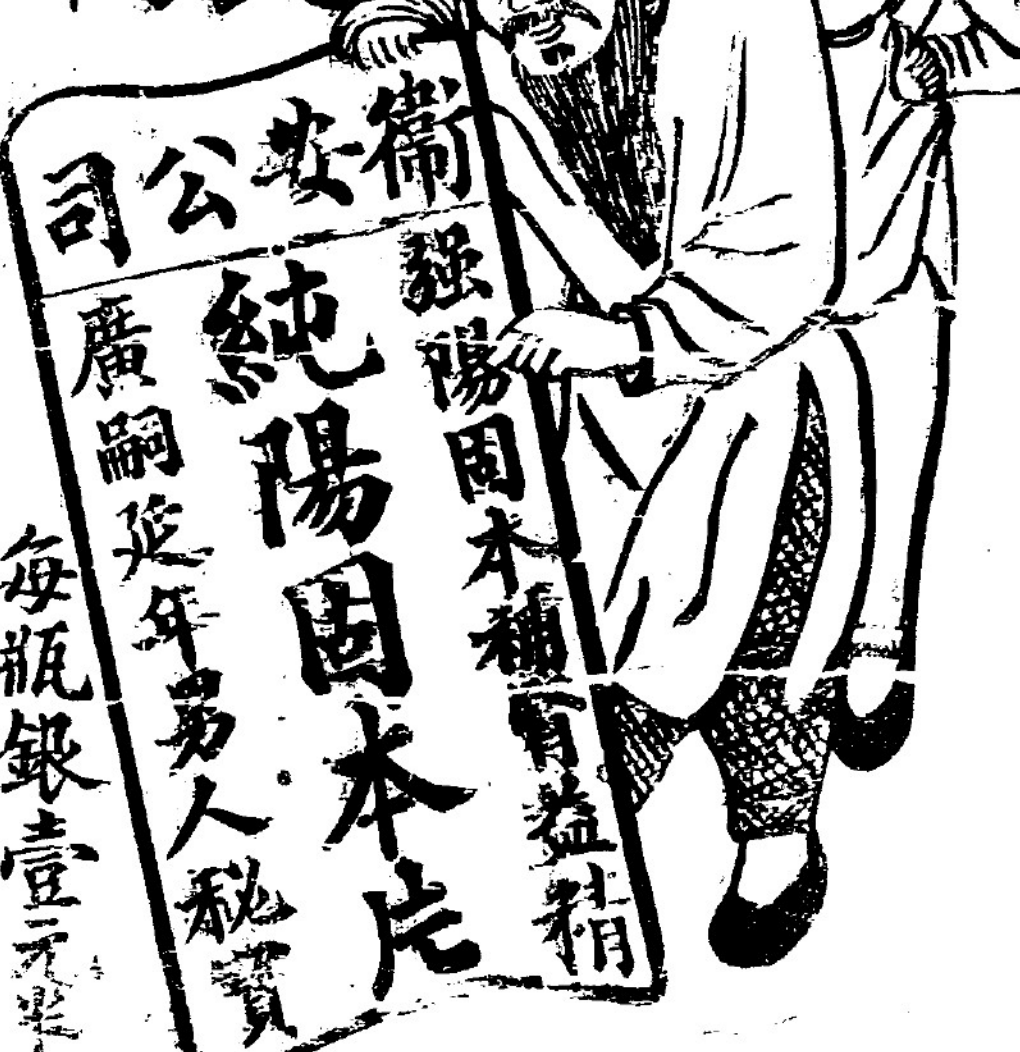 衞安公司
强陽固本補腎益精
純陽固本片
廣嗣延年男人秘寶
每瓶銀壹元